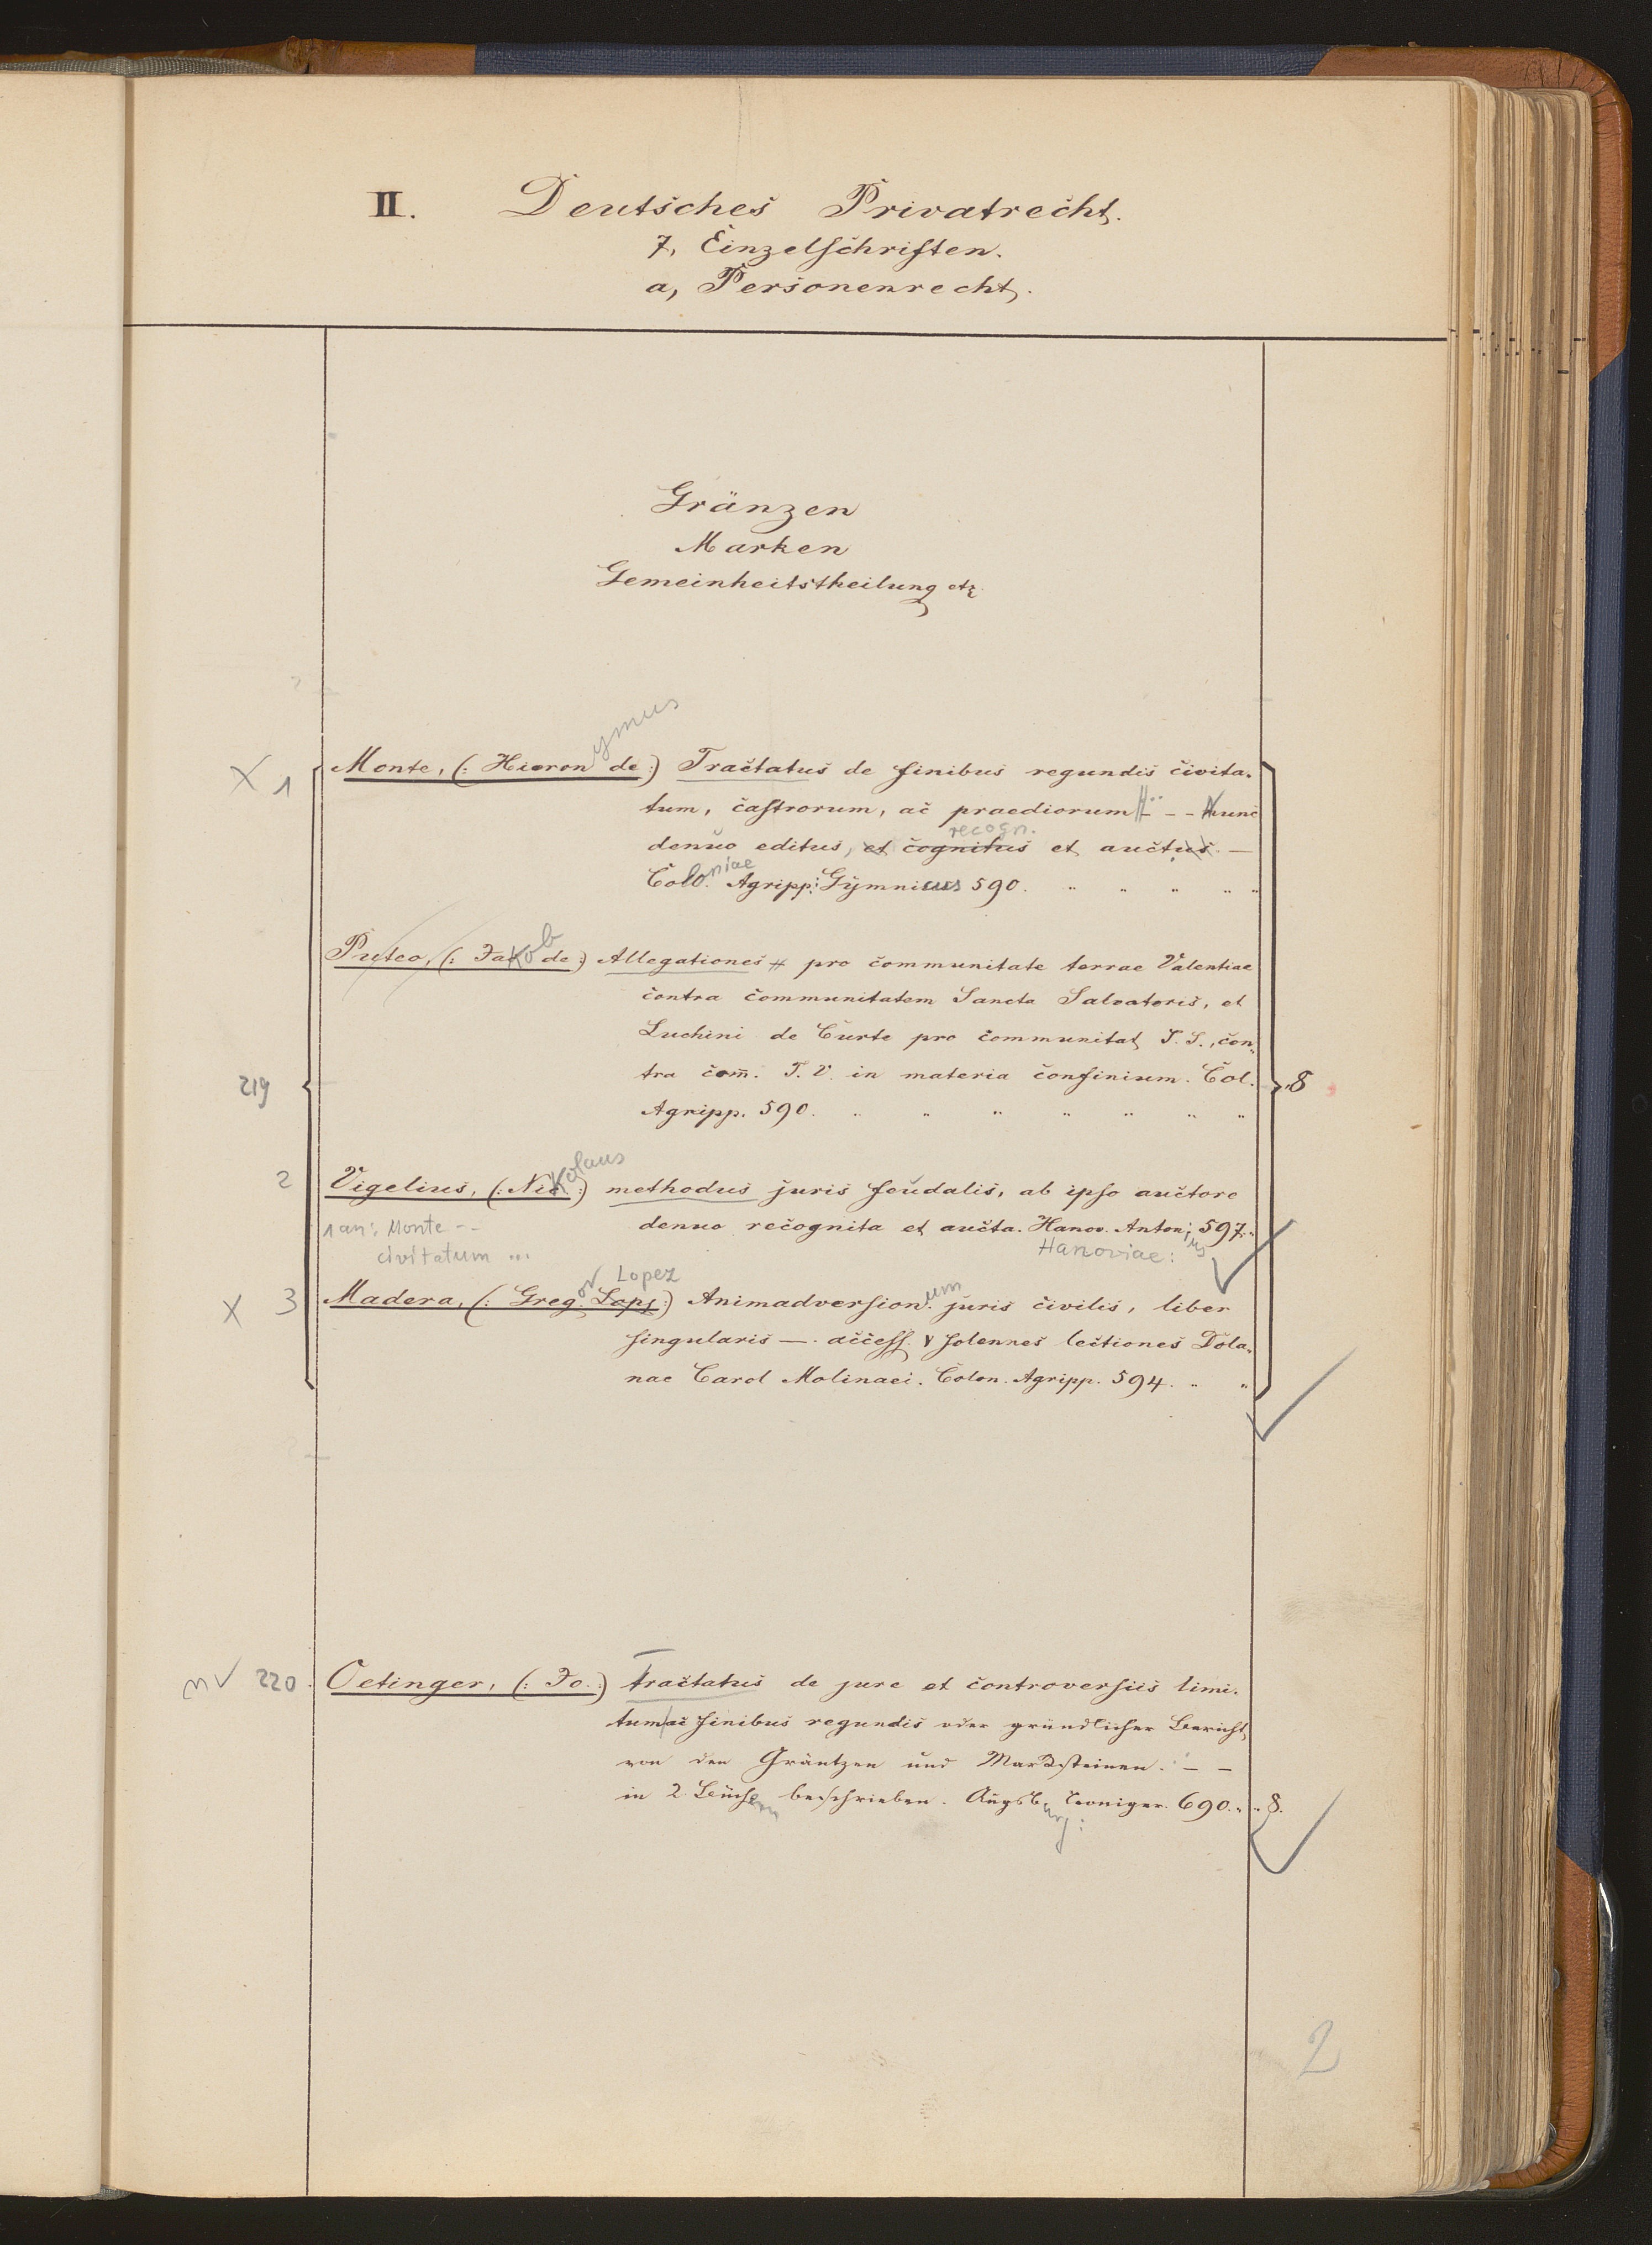 II. Deutsches Privatrecht.
7, Einzelschriften.
a, Personenrecht.
Gränzen
Marken
Gemeinheitstheilung etc
ymus
X 1 Monte, (: Hieron de :) Tractatus de finibus regundis civita-
tum, castrorum, ac praediorum - - Nunc
recogn.
denuo editus, et cognitus et auctus. —
Coloniae Agripp: Gymnicus 590. " " " " "
Puteo, (: Jakob de :) Allegationes pro communitate terrae Valentiae
contra communitatem Sancta Salvatoris, et
Luchini de Curte pro communitat, S. S., con-
219 tra com̄. T. V. in materia confinium. Col. 8
Agripp. 590. " " " " " " "
2 Vigelius, (: Nikolaus :) methodus juris feudalis, ab ipso auctore
1 an: Monte -- denuo recognita et aucta. Hanov. Antonius 597. "
civitatum ... Hanoviae:
Lopez
X 3 Madera, (: Gregor Lops :) Animadversionum juris civilis, liber
singularis —. access. solennes lectiones Dola-
nae Carol Molinaei. Colon. Agripp. 594. " "
220. Oetinger, (: Jo. :) Tractatus de jure et controversiis limi-
tum ac finibus regundis oder gründlicher Bericht,
von den Gräntzen und Marcksteinen. - -
in 2 Büchern beschrieben. Augsburg: Kroniger. 690. " " 8.
2